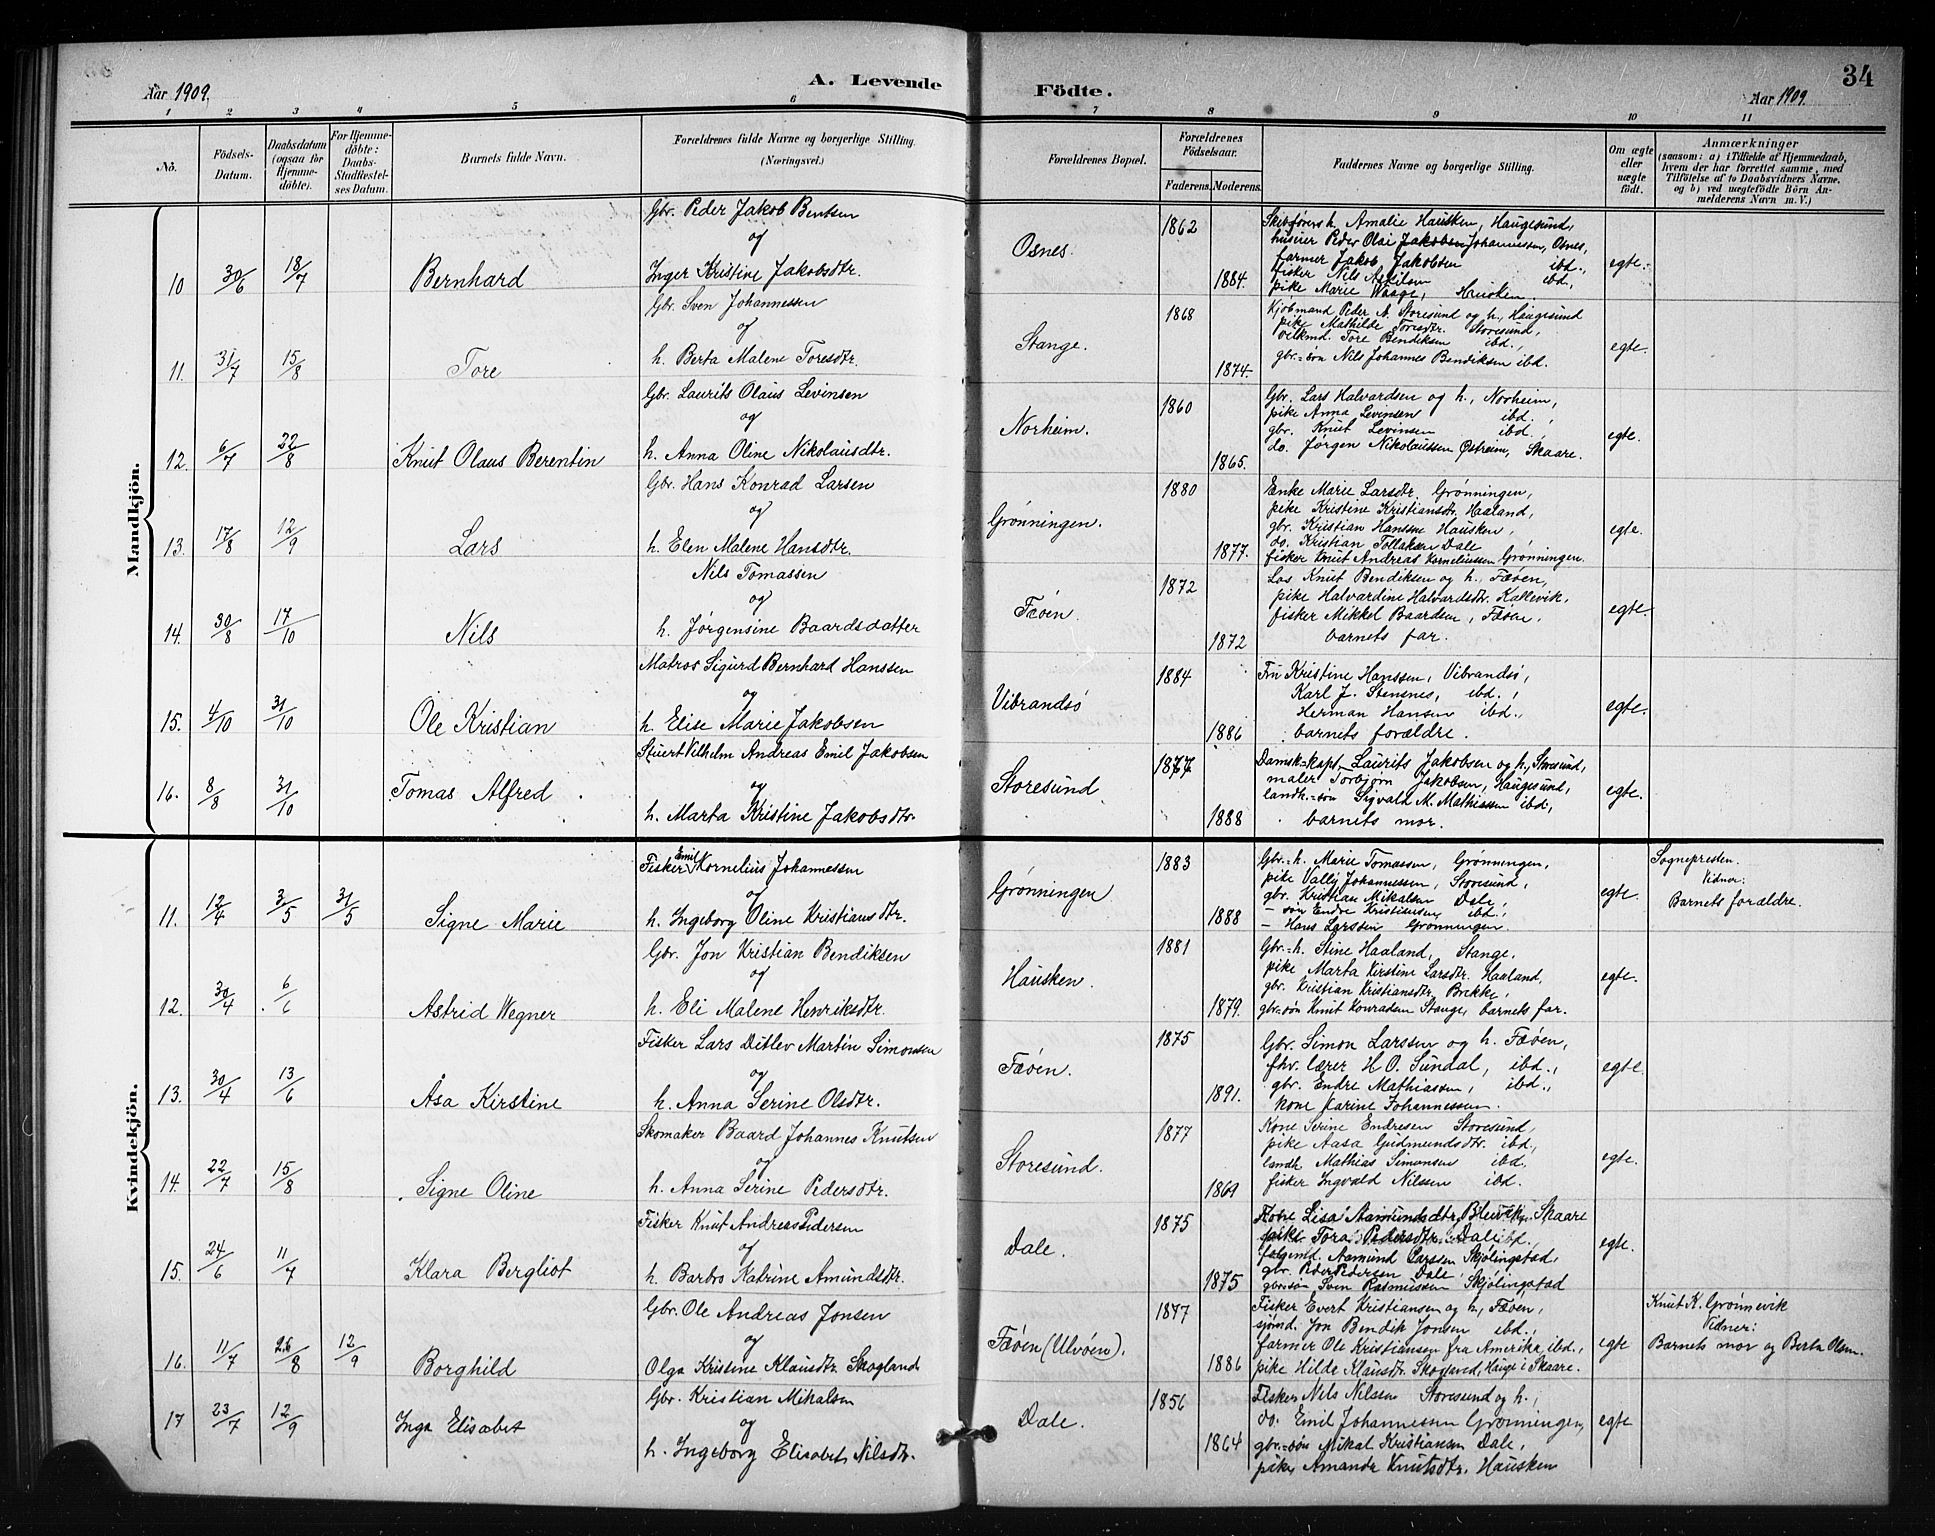 Aar 1909.
A. Levende Födte.
Aar 1909.
34
1 2 3 4 5 6 7 8 9 10 11
No.
Födsels-Datum.
Daabsdatum (ogsaa for Hjemmedöbte).
For Hjemmedöbte: Daabs-Stadfæstelses Datum.
Barnets fulde Navn.
Forældrenes fulde Navne og borgerlige Stilling. (Næringsvei.)
Forældrenes Bopæl.
Forældrenes Födselsaar.
Faderens. Moderens.
Faddernes Navne og borgerlige Stilling.
Om ægte eller uægte födt.
Anmærkninger
(saasom: a) i Tilfælde af Hjemmedaab, hvem der har forrettet samme, med Tilföielse af to Daabsvidners Navne, og b) ved uægtefödte Börn Anmelderens Navn m. V.)
Mandkjön.
10 30/6 18/7 Bernhard
Gbr. Peder Jakob Bentsen
og
Inger Kristine Jakobsdtr.
Osnes. 1862 1884.
Skibsførers h. Amalie Hausken, Haugesund,
huseier Peder Olai Johannessen, Osnes,
farmer Jakob Jakobsen ibd.,
fisker Nils Askilsen ibd.,
pike Marie Waage, Hausken
egte.
11. 31/7 15/8 Tore
Gbr. Sven Johannessen
og
h. Berta Malene Toresdtr.
Stange. 1868 1874.
Kjøbmand Peder N. Storesund og h., Haugesund
pike Mathilde Toresdtr. Storesund,
Tore Bendiksen ibd.,
gbr.-søn Nils Johannes Bendiksen ibd.
egte.
12. 6/7 22/8 Knut Olaus Berentin
Gbr. Laurits Olaus Levinsen
og
h. Anna Oline Nikolausdtr.
Norheim. 1860 1865.
Gbr. Lars Halvardsen og h., Norheim,
pike Anna Levinsen ibd.,
gbr. Knut Levinsen ibd.,
do. Jørgen Nikolaussen Østreim, Skaare.
egte.
13. 17/8 12/9 Lars
Gbr. Hans Konrad Larsen
og
h. Elen Malene Hansdtr.
Grønningen. 1880 1877.
Enke Marie Larsdtr. Grønningen,
pike Kristine Kristiansdtr. Haaland,
gbr. Kristian Hanssen Hausken,
do. Kristian Tollaksen Dale
fisker Knut Andreas Korneliussen Grønningen.
egte.
14. 30/8 17/10 Nils
Nils Tomassen
og
h. Jørgensine Baardsdatter
Fæøen 1872 1872
Los Knut Bendiksen og h., Fæøen,
pike Halvardine Halvardsdtr. Kallevik,
fisker Mikkel Baardsen, Fæøen,
barnets far.
egte
15. 4/10 31/10 Ole Kristian
Matros Sigurd Bernhard Hanssen
og
h. Elise Marie Jakobsen
Vibrandsø 1884 1886
Fru Kristine Hanssen, Vibrandsø,
Karl J. Stensnes, ibd.,
Herman Hansen ibd.,
barnets forældre.
egte.
16. 8/8 31/10 Tomas Alfred
Stuert Vilhelm Andreas Emil Jakobsen
og
h. Marta Kristine Jakobsdtr.
Storesund 1877 1888
Damsk.-kapt. Laurits Jakobsen og h., Storesund,
maler Torbjørn Jakobsen, Haugesund,
landh.-søn Sigvald M. Mathiassen ibd,
barnets mor.
egte.
Kvindekjön.
11. 12/4 3/5 31/5 Signe Marie
Fisker Emil Kornelius Johannessen
og
h. Ingeborg Oline Kristiansdtr.
Grønningen 1883 1888
Gbr.-h. Marie Tomassen, Grønningen,
pike Vally Johannessen, Storesund,
gbr. Kristian Mikalsen Dale,
- søn Endre Kristiansen ibd.,
- Hans Larssen Grønningen.
egte.
Sognepresten.
Vidner:
Barnets forældre.
12. 30/4 6/6 Astrid Wegner
Gbr. Jon Kristian Bendiksen
og
h. Eli Malene Henriksdtr.
Hausken. 1881 1879.
Gbr.-h. Stine Haaland, Stange,
pike Marta Kirstine Larsdtr. Haaland,
gbr. Kristian Kristiansdtr. Brekke,
gbr.-søn Knut Konradsen Stange, barnets far.
egte.
13. 30/4 13/6 Åsa Kirstine
Fisker Lars Ditlev Martin Simonsen
og
h. Anna Serine Olsdtr.
Fæøen. 1875 1891.
Gbr. Simon Larssen og h. Fæøen,
fhv. lærer H. O. Sundal, ibd.,
gbr. Endre Mathiassen, ibd.,
kone Karine Johannessen.
egte.
14. 22/7 15/8 Signe Oline
Skomaker Baard Johannes Knutsen
og
h. Anna Serine Pedersdtr.
Storesund. 1877 1869
Kone Serine Endresen Storesund,
pike Aasa Gudmundsdtr. ibd.,
landh. Mathias Simonsen ibd.
fisker Ingvald Nilssen ibd.
egte.
15. 24/6 11/7 Klara Bergliot
Fisker Knut Andreas Pedersen
og
h. Barbro Katrine Amundsdtr.
Dale. 1875 1875
Kone Lisa Aamundsdtr. Skaare
pike Tora Pedersdtr. Dale
Aamund Larssen Skjølingstad,
gbr. Peder Pedersen Dale,
gbr.søn Sven Rasmussen Skjølingstad
egte.
16. 11/7 26/8 12/9 Borghild
Gbr. Ole Andreas Jonsen
og
Olga Kristine Klausdtr. Skogland
Fæøen (Ulvøen). 1877 1886
Fisker Evert Kristiansen og h., Fæøen,
sjømd. Jon Bendik Jonsen ibd.,
farmer Ole Kristiansen fra Amerika, ibd.,
pike Hilde Klausdtr. Skogland, Hauge i Skaare.
egte
Knut K. Grønnevik
Vidner:
Barnets mor og Berta Olsen.
17 23/7 12/9 Inga Elisabet
Gbr. Kristian Mikalsen
og
h. Ingeborg Elisabet Nilsdtr.
Dale. 1856 1864
Fisker Nils Nilssen Storesund og h.,
do. Emil Johannessen Grønningen,
gbr.-søn Mikal Kristiansen Dale,
pike Amanda Knutsdtr. Hausken
egte